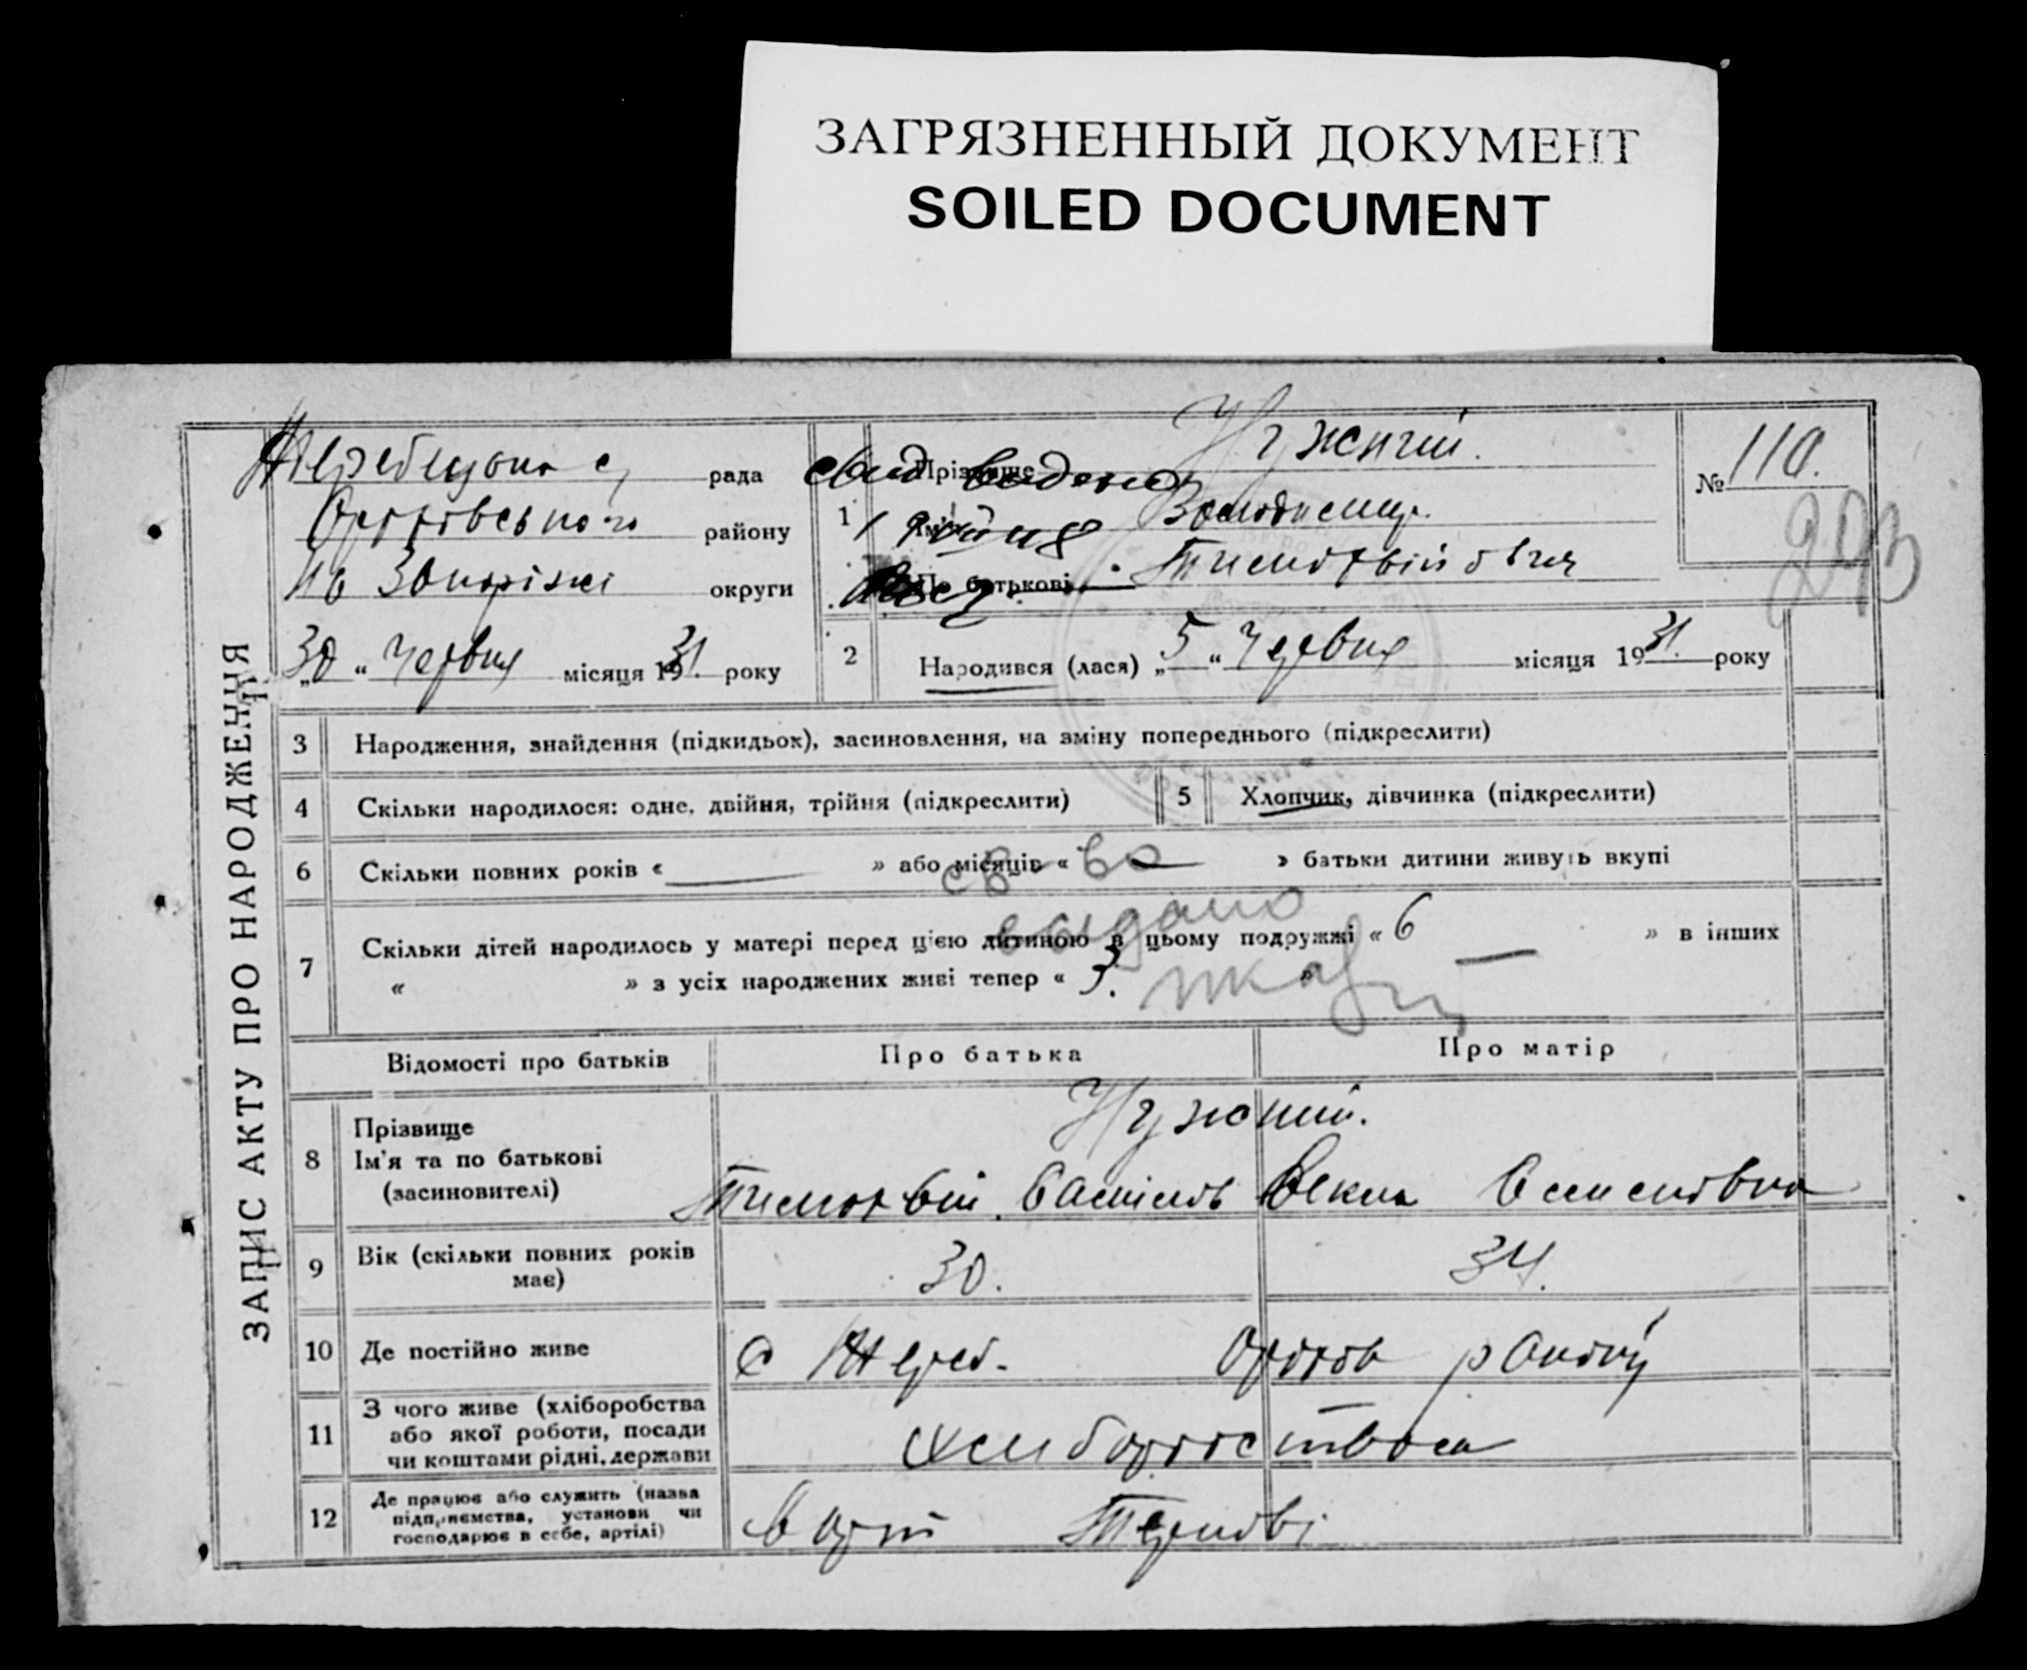 ЗАГРЯЗНЕННЫЙ ДОКУМЕНТ
SOILED DOCUMENT
ЗАПИС АКТУ ПРО НАРОДЖЕННЯ
рада
району
Запоріжжі округи
„30“ Червня місяця 1931. року
1 Прізвище Нужний.
Ім'я Володимир.
По батькові Тимофвійович
№ 110.
293
2 Народився (лася) „5“ Червня місяця 1931. року
3 Народження, знайдення (підкидьох), засиновлення, на зміну попереднього (підкреслити)
4 Скільки народилося: одне, двійня, трійня (підкреслити)
5 Хлопчик, дівчинка (підкреслити)
6 Скільки повних років « — » або місяців « — » батьки дитини живуть вкупі
св-во
выдано
7 Скільки дітей народилось у матері перед цією дитиною в цьому подружжі « 6 » в інших
« — » з усіх народжених живі тепер « 3. »
Відомості про батьків Про батька Про матір
8 Прізвище Нужний.
Ім'я та по батькові
(засиновителі) Тимофвій Васильов Векла Семеновна
9 Вік (скільки повних років має) 30. 34.
10 Де постійно живе с Жереб. Оріхов району
11 З чого живе (хліборобства
або якої роботи, посади
чи коштами рідні, держави
12 Де працює або служить (назва
підприємства, установи чи
господарює в себе, артілі)